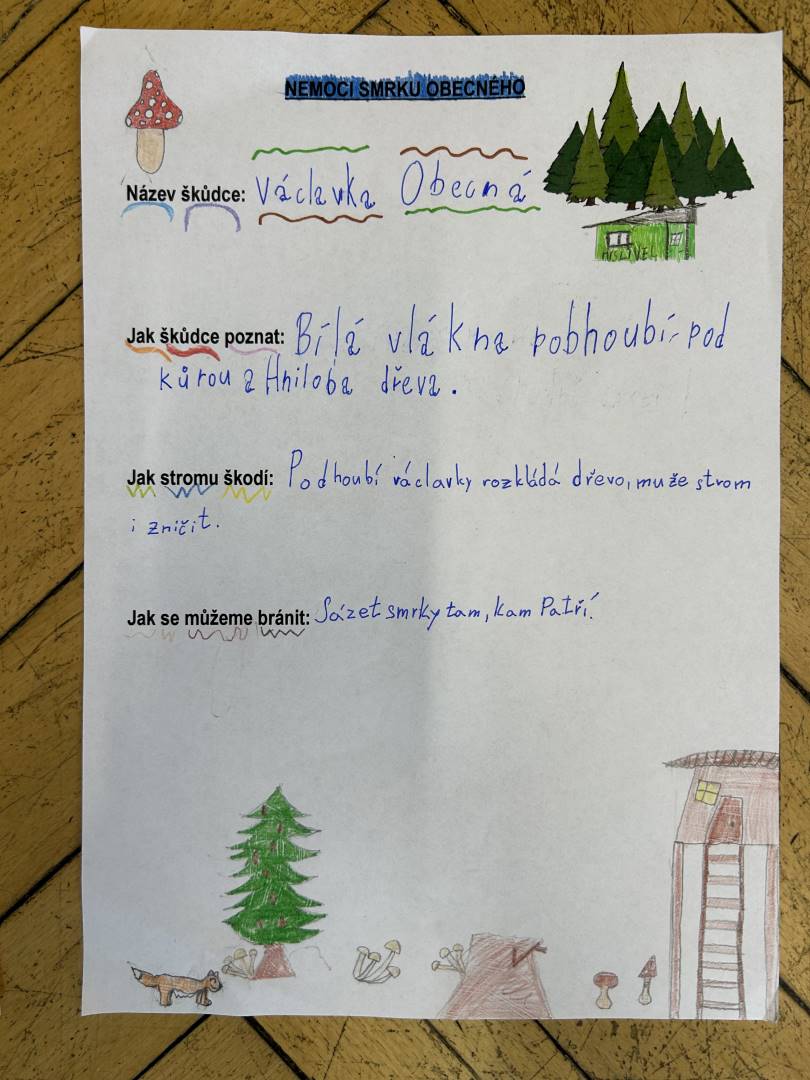 NEMOCI SMRKU OBECNÉHO
Název škůdce: Václavka Obecná
MISLIVEL
Jak škůdce poznat: Bílá vlákna pobhoubí-pod
kůrou a Hniloba dřeva.
Jak stromu škodí: Podhoubí václavky rozkládá dřevo, muže strom
i zničit.
Jak se můžeme bránit: Sázet smrky tam, kam Patří!